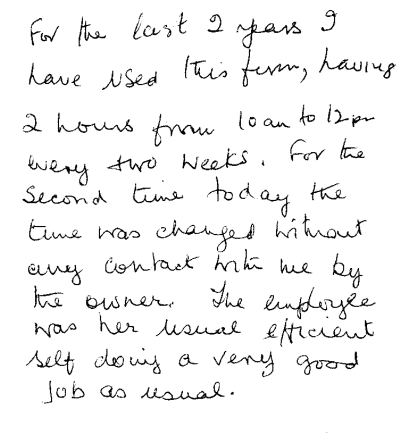 For the last 2 years I
have used this firm, having
2 hours from 10am to 12pm
every two weeks. For the
second time today the
time was changed without
any contact with me by
the owner. The employee
was her usual efficient
self doing a very good
job as usual.